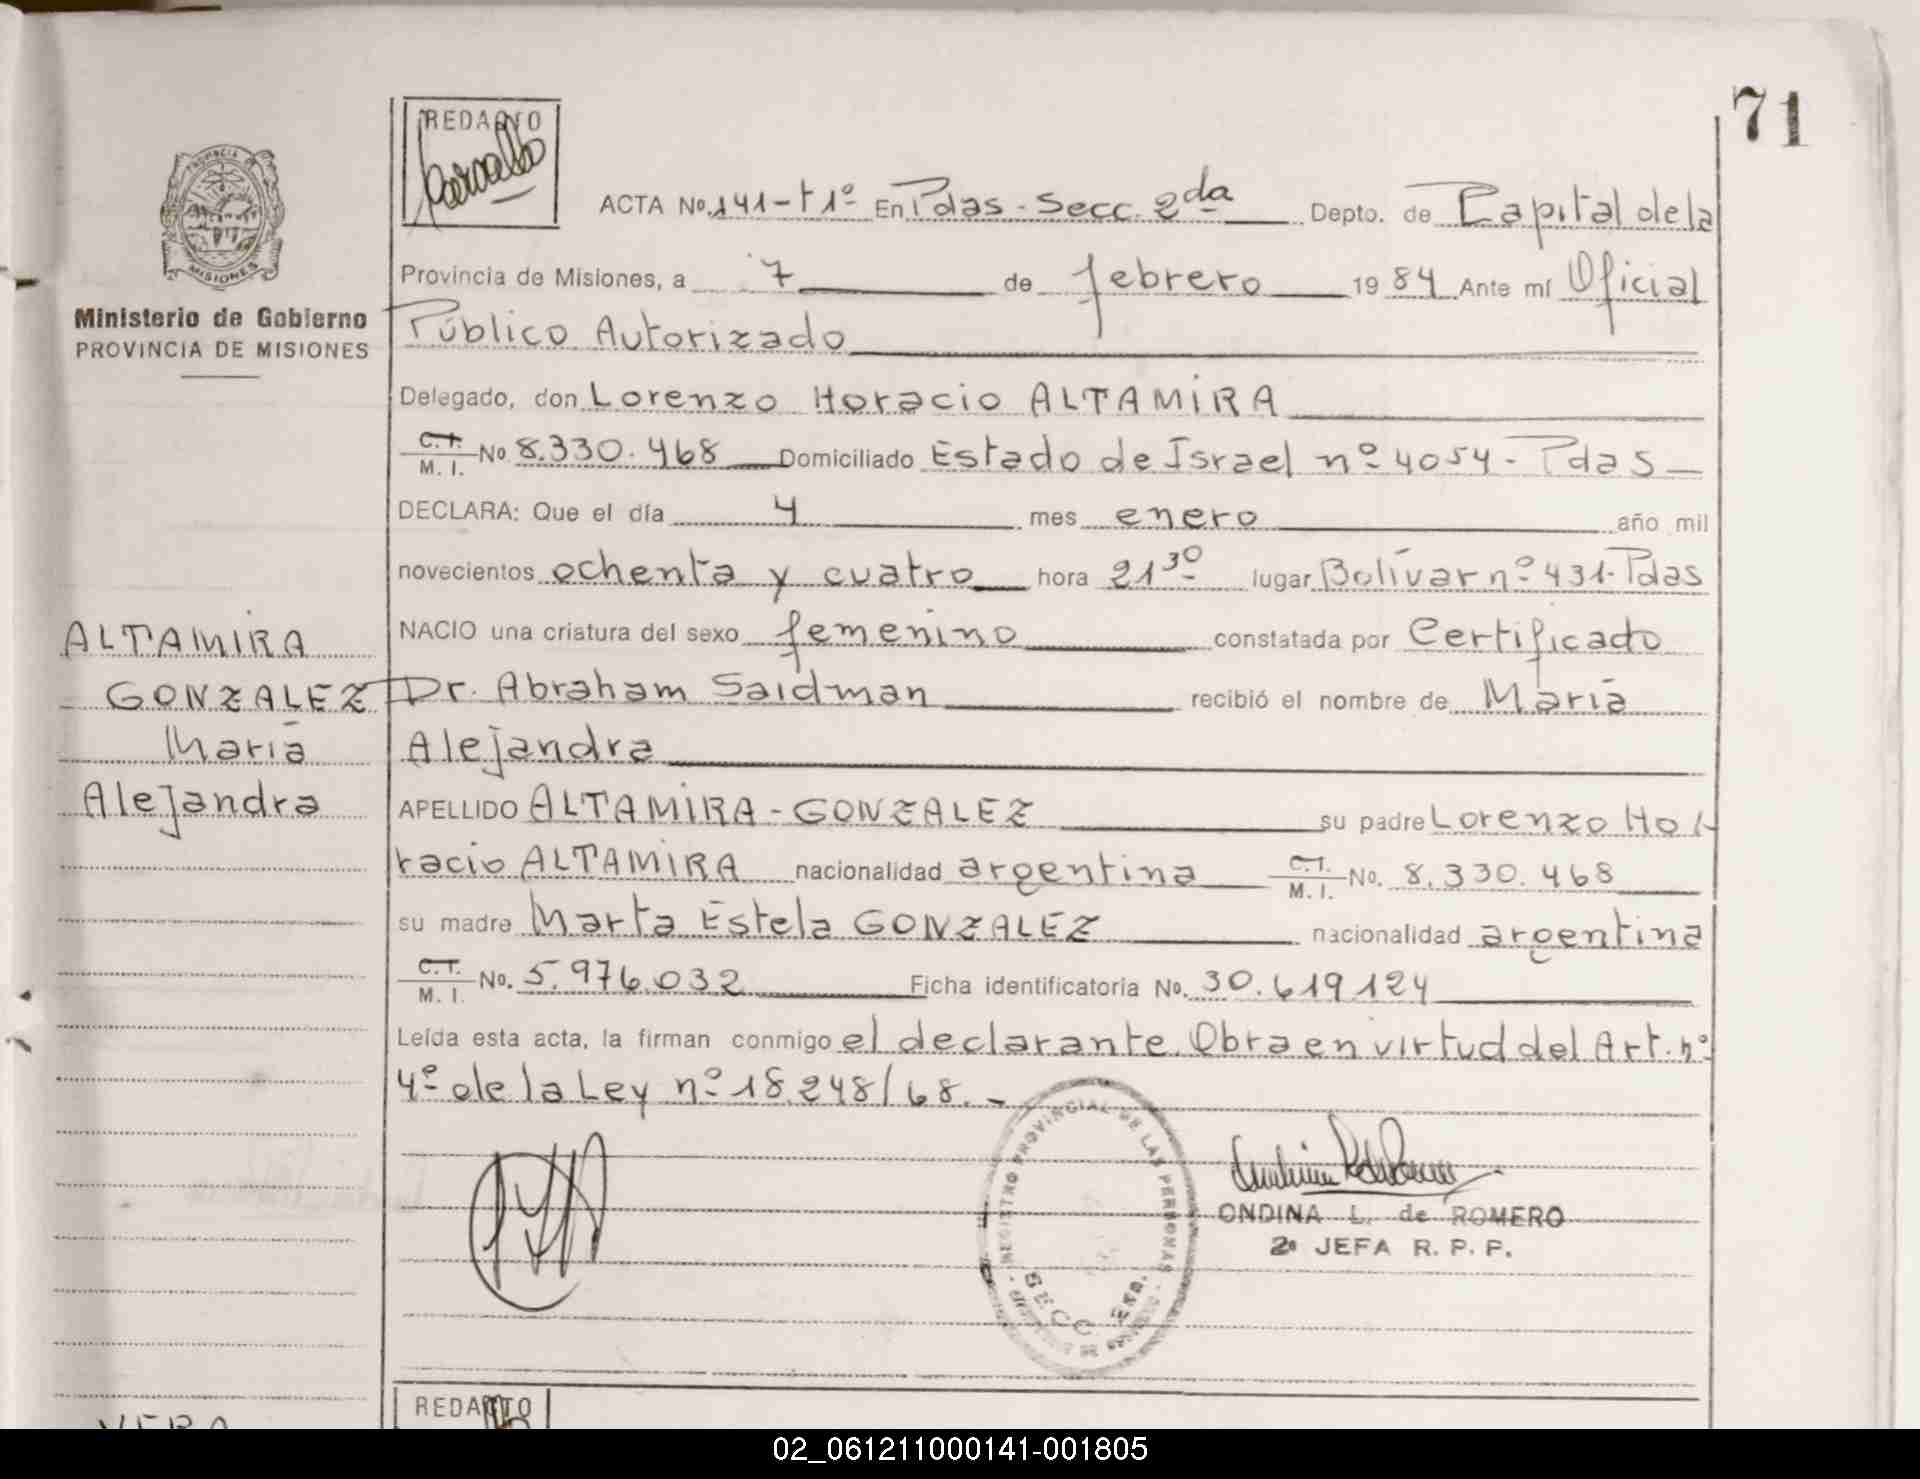 71
REDACTO
Carvallo
PROVINCIA DE
MISIONES
Ministerio de Gobierno
PROVINCIA DE MISIONES
ACTA No. 141-t1º En Pdas - Secc. 2da Depto. de Capital de la
Provincia de Misiones, a 7 de febrero 1984 Ante mí Oficial
Público Autorizado
Delegado, don Lorenzo Horacio ALTAMIRA
C.I. M. I. No 8.330.468 Domiciliado Estado de Israel nº 4054 - Pdas
DECLARA: Que el día 4 mes enero año mil
novecientos ochenta y cuatro hora 21³⁰ lugar Bolívar nº 431. Pdas
NACIO una criatura del sexo femenino constatada por Certificado
Dr. Abraham Saidman recibió el nombre de María
Alejandra
APELLIDO ALTAMIRA - GONZALEZ su padre Lorenzo Ho
racio ALTAMIRA nacionalidad argentina C.I. M. I. No. 8.330.468
su madre Marta Estela GONZALEZ nacionalidad argentina
C.I. M. I. No. 5.976.032 Ficha identificatoria No. 30.619.124
Leída esta acta, la firman conmigo el declarante. Obra en virtud del Art. nº
4º de la Ley nº 18.248/68. -
ALTAMIRA
GONZALEZ
María
Alejandra
REGISTRO PROVINCIAL DE LAS PERSONAS
SECC. 2da.
ONDINA L. de ROMERO
2ª JEFA R. P. P.
REDACTO
VERA
02_061211000141-001805